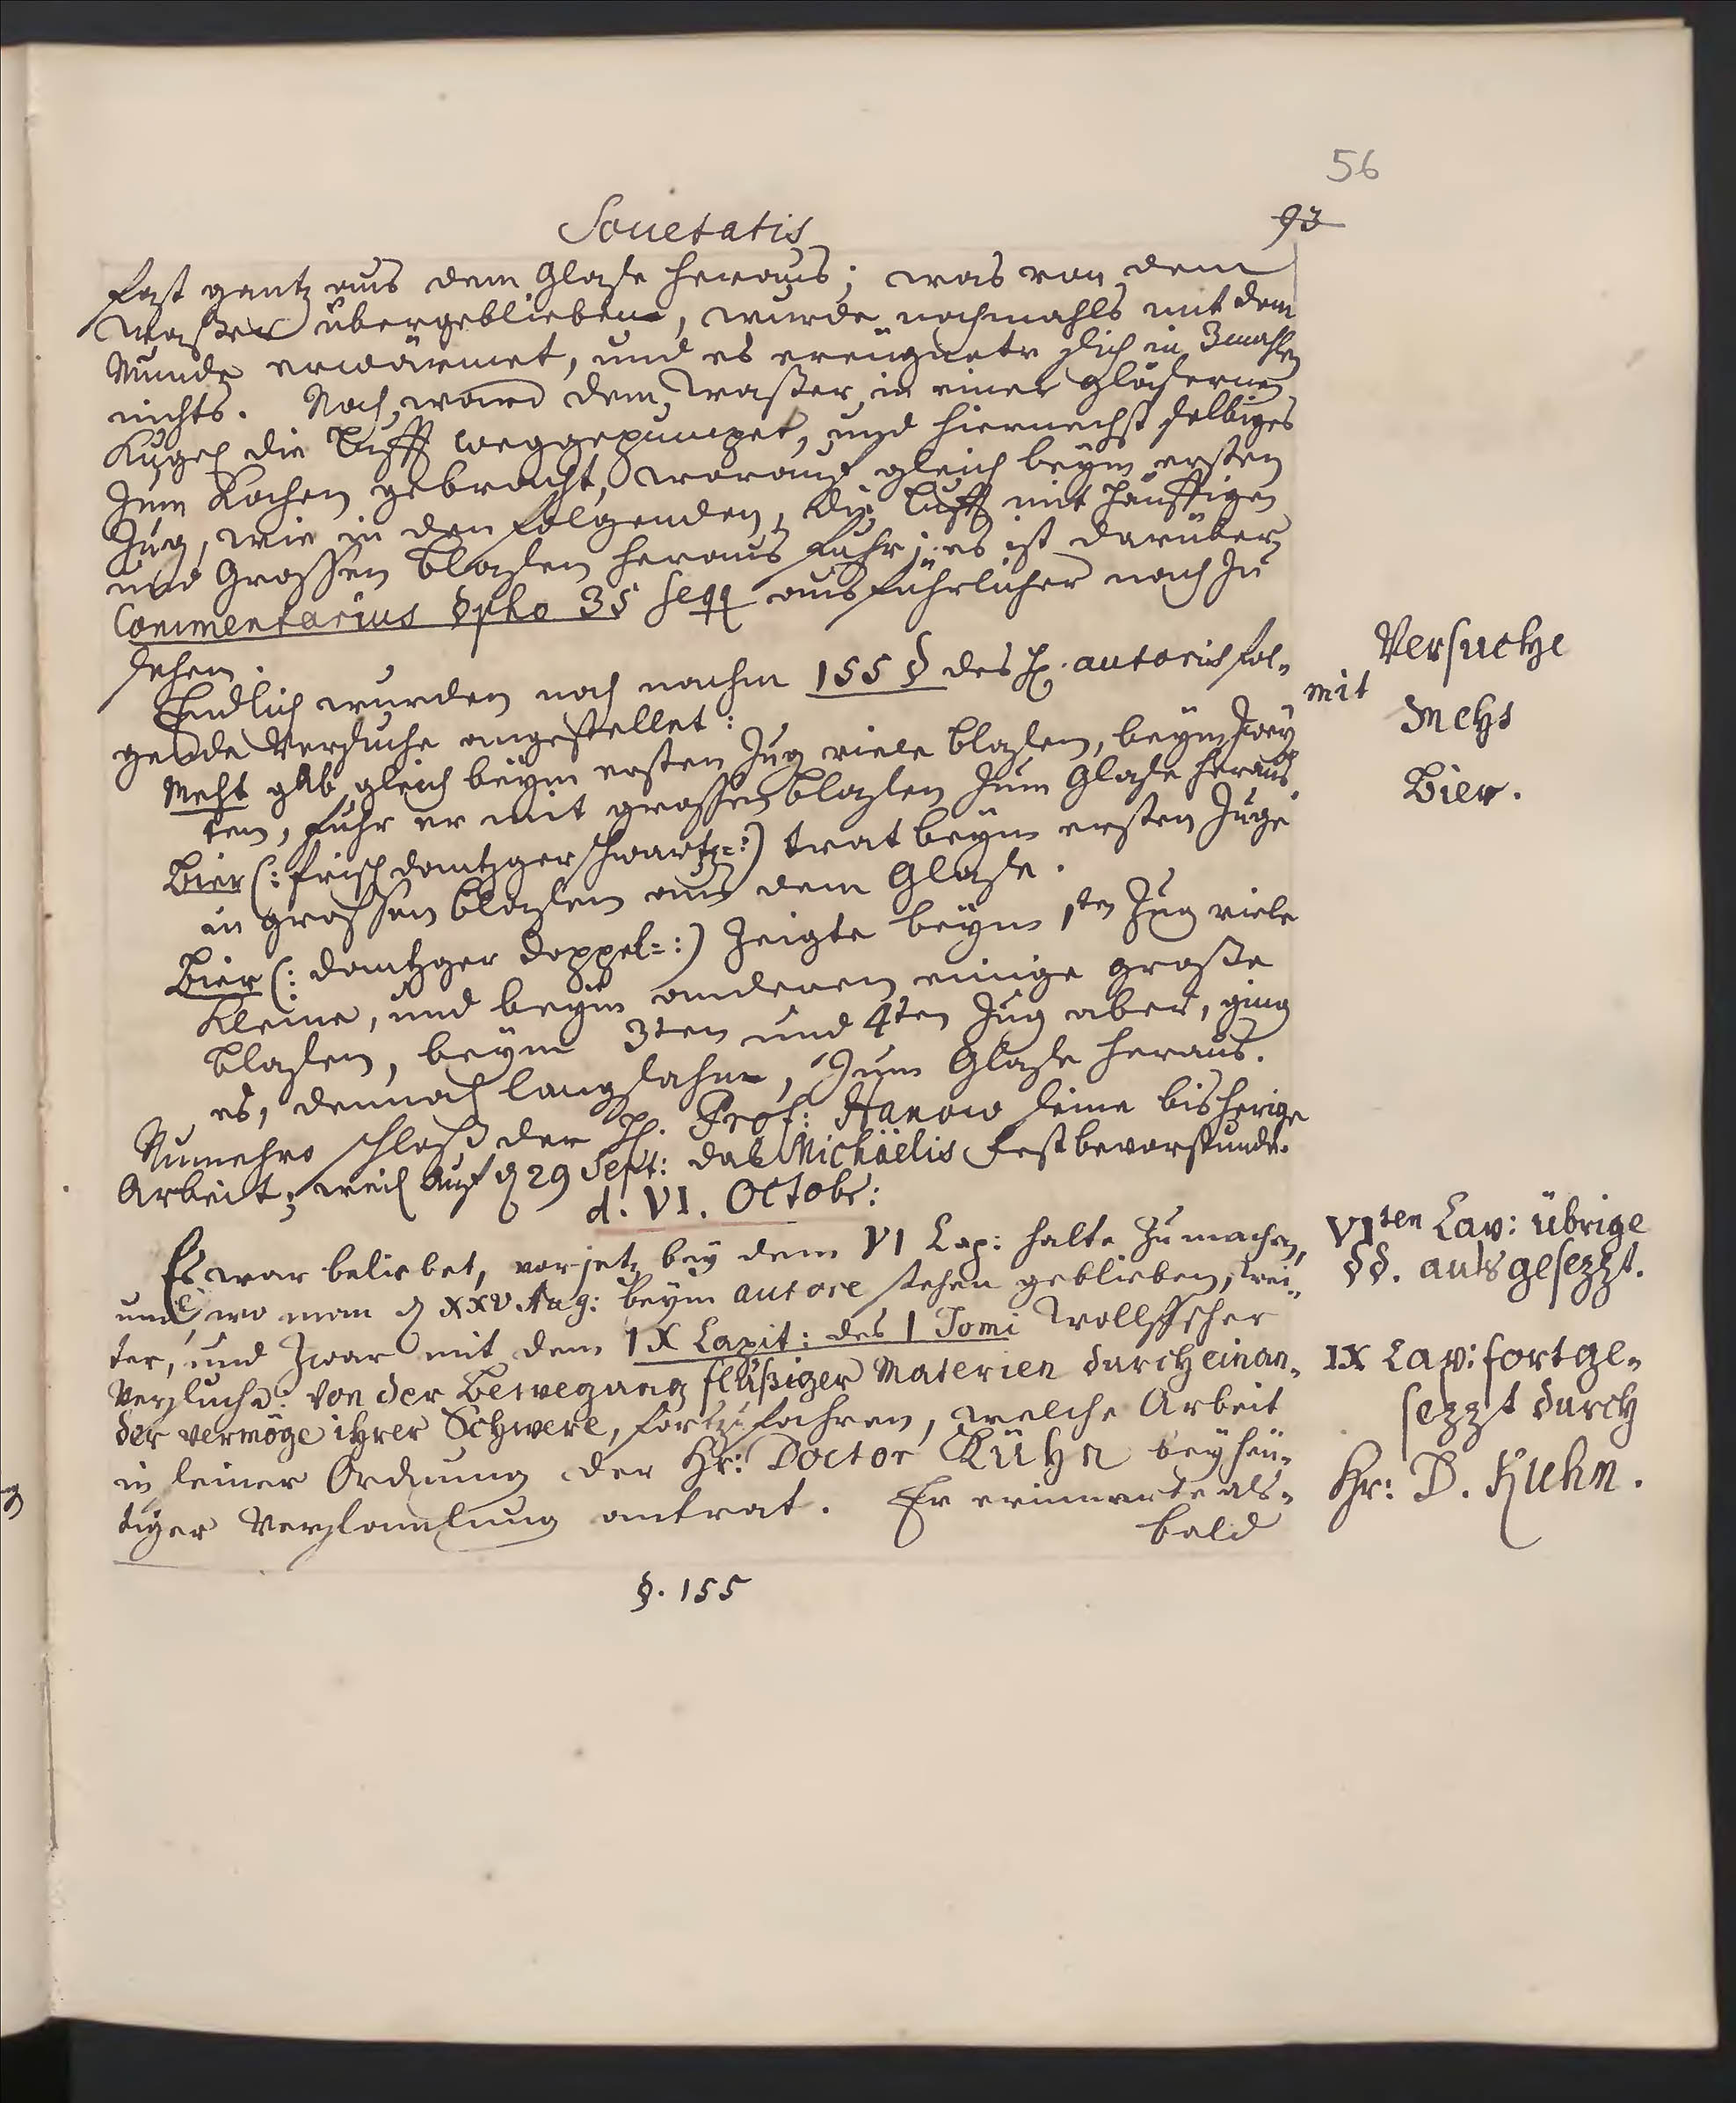 56
Societatis
93
fast gantz aus dem Glase heraus; was von dem
Waßer übergeblieben, wurde nochmahls mit dem
Munde erwärmet, und es ereügnete sich in 3mahlen
nichts. Noch ward dem Waßer in einer gläsernen
Kugel die Lufft weggepumpet, und hiernechst selbiges
zum Kochen gebracht, worauf gleich beÿm ersten
Zug, wie in den folgenden, die Lufft mit häuffigen
und Grossen Blasen heraus fuhr; es ist darüber
Commentarius §pho 35 seqq ausführlicher nach zu
sehen.
Endlich wurden noch nachm 155 § des H. autoris fol-
gende Versuche angestellet:
Meht gab gleich beÿm ersten Zug viele Blasen, beÿm zweÿ
ten, fuhr er mit grossen Blasen zum Glase heraus.
Bier (: frisch dantzger schwartz=:) trat beÿm ersten Zuge
in grossen Blasen aus dem Glase.
Bier (: dantzger doppel=:) zeigte beÿm 1ten Zug viele
Kleine, und beÿm anderen einige große
Blasen, beÿm 3ten und 4ten Zug aber, ging
es, dennoch langsahm, zum Glase heraus.
Numehro schloß der H. Prof: Hanow seine bisherige
Arbeit; weil auf d 29 Sept: das Michäelis Fest bevorstunde.
d. VI. Octobr:
Es war beliebet, vorjetz beÿ dem VI Cap: halte zu machen,
und wo man d XXV Aug: beÿm autore stehen geblieben, wei-
ter, und zwar mit dem IX Capit: des I Tomi Wollffscher
Versuche: Von der Bewegung flüßiger Materien durch einan-
der vermöge ihrer Schwere, fortzufahren, welche Arbeit
in seiner Ordnung der Hr: Doctor Kühn beÿ heü-
tiger Versamlung antrat. Er erinnerte als-
bald
§. 155
Versuche
mit
Meht
Bier.
VIten Cap: übrige
§§. ausgesezzt.
IX Cap: fortge-
sezzt durch
Hr: D. Kuhn.